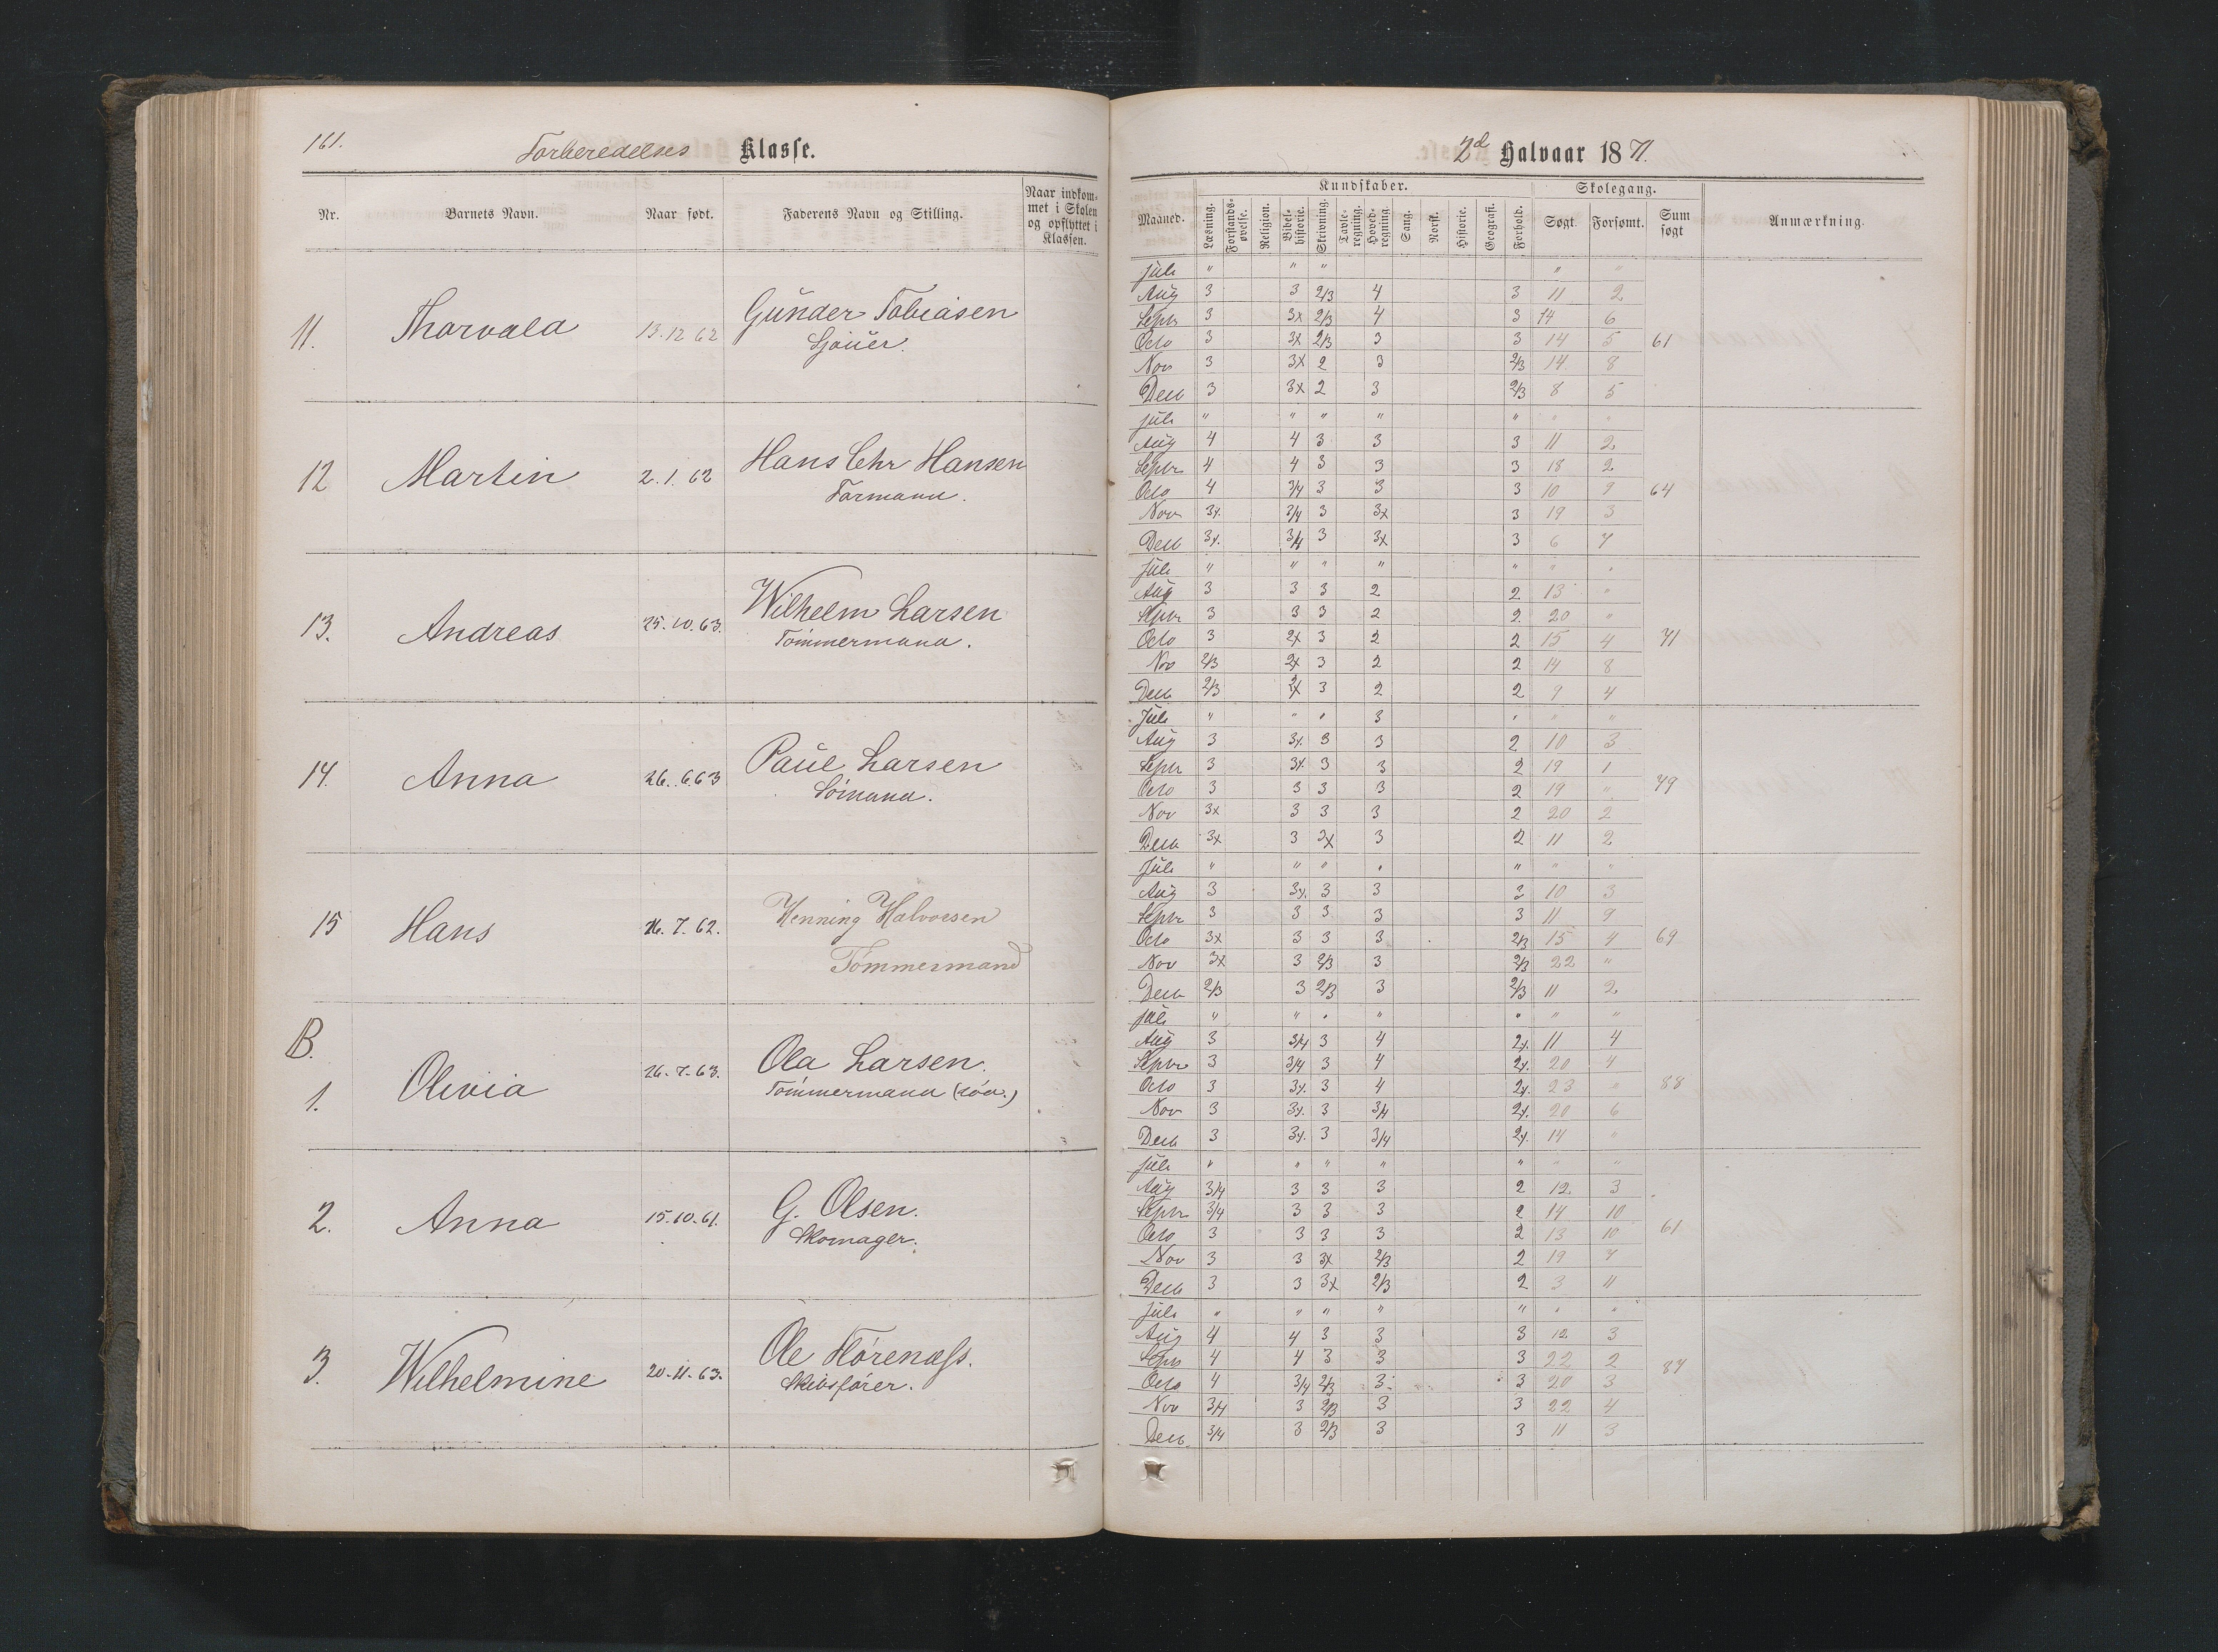 161.
Forberedelses Klasse.
Nr.
Barnets Navn.
Naar født.
Faderens Navn og Stilling.
Naar indkom-
met i Skolen
og opflyttet i
Klassen.
11.
Thorvald
13.12 62
Gunder Tobiasen
Sjouer.
12
Martin
2.1.62
Hans Chr Hansen
Formand.
13.
Andreas
25.10.63.
Wilhelm Larsen
Tømmermand.
14.
Anna
26.6.63
Paul Larsen
Sømand.
15
Hans
16.7.62.
Henning Halvorsen
Tømmermand
B.
1.
Olivia
26.7.63.
Ola Larsen.
Tømmermand
2.
Anna
15.10.61.
G. Olsen.
Skomager.
3.
Wilhelmine
20.11.63.
Ole Flørenæss.
Skibsfører.
2d Halvaar 1871.
Maaned.
Kundskaber.
Læsning.
Forstands-
øvelse.
Religion.
Bibel-
historie.
Skrivning.
Tavle-
regning.
Hoved-
regning.
Sang.
Norsk.
Historie.
Geografi.
Forhold.
Skolegang.
Søgt.
Forsømt.
Sum
søgt
Anmærkning.
Juli " " " " "
Aug 3 3 2/3 4 3 11 2
Septr 3 3x 2/3 4 3 14 6
Octo 3 3x 2/3 3 3 14 5 61
Nov 3 3x 2 3 2/3 14 8
Decb 3 3x 2 3 2/3 8 5
Juli " " " " " " "
Aug 4 4 3 3 3 11 2
Septr 4 4 3 3 3 18 2
Octo 4 3/4 3 3 3 10 9 64
Nov 3x 3/4 3 3x 3 19 3
Decb 3x 3/4 3 3x 3 6 7
Juli " " " " " " "
Aug 3 3 3 2 2 13 "
Septr 3 3 3 2 2 20 "
Octo 3 2x 3 2 2 15 4 71
Nov 2/3 2x 3 2 2 14 8
Decb 2/3 2x 3 2 2 9 4
Juli " " " 3 " " "
Aug 3 3x 3 3 2 10 3
Septr 3 3x 3 3 2 19 1
Octo 3 3 3 3 2 19 " 79
Nov 3x 3 3 3 2 20 2
Decb 3x 3 3x 3 2 11 2
Juli " " " " " " "
Aug 3 3x 3 3 3 10 3
Septr 3 3 3 3 3 11 9
Octo 3x 3 3 3 2/3 15 4 69
Nov 3x 3 2/3 3 2/3 22 "
Decb 2/3 3 2/3 3 2/3 11 2
Juli " " " " " " "
Aug 3 3/4 3 4 2x 11 4
Septr 3 3/4 3 4 2x 20 4
Octo 3 3x 3 4 2x 23 " 88
Nov 3 3x 3 3/4 2x 20 6
Decb 3 3x 3 3/4 2x 14 "
Juli " " " " " " "
Aug 3/4 3 3 3 2 12 3
Septr 3/4 3 3 3 2 14 10
Octo 3 3 3 3 2 13 10 61
Nov 3 3 3x 2/3 2 19 7
Decb 3 3 3x 2/3 2 3 11
Juli " " " " " " "
Aug 4 4 3 3 3 12 3
Septr 4 4 3 3 3 22 2
Octo 4 3/4 2/3 3 3 20 3 87
Nov 3/4 3 2/3 3 3 22 4
Decb 3/4 3 2/3 3 3 11 3